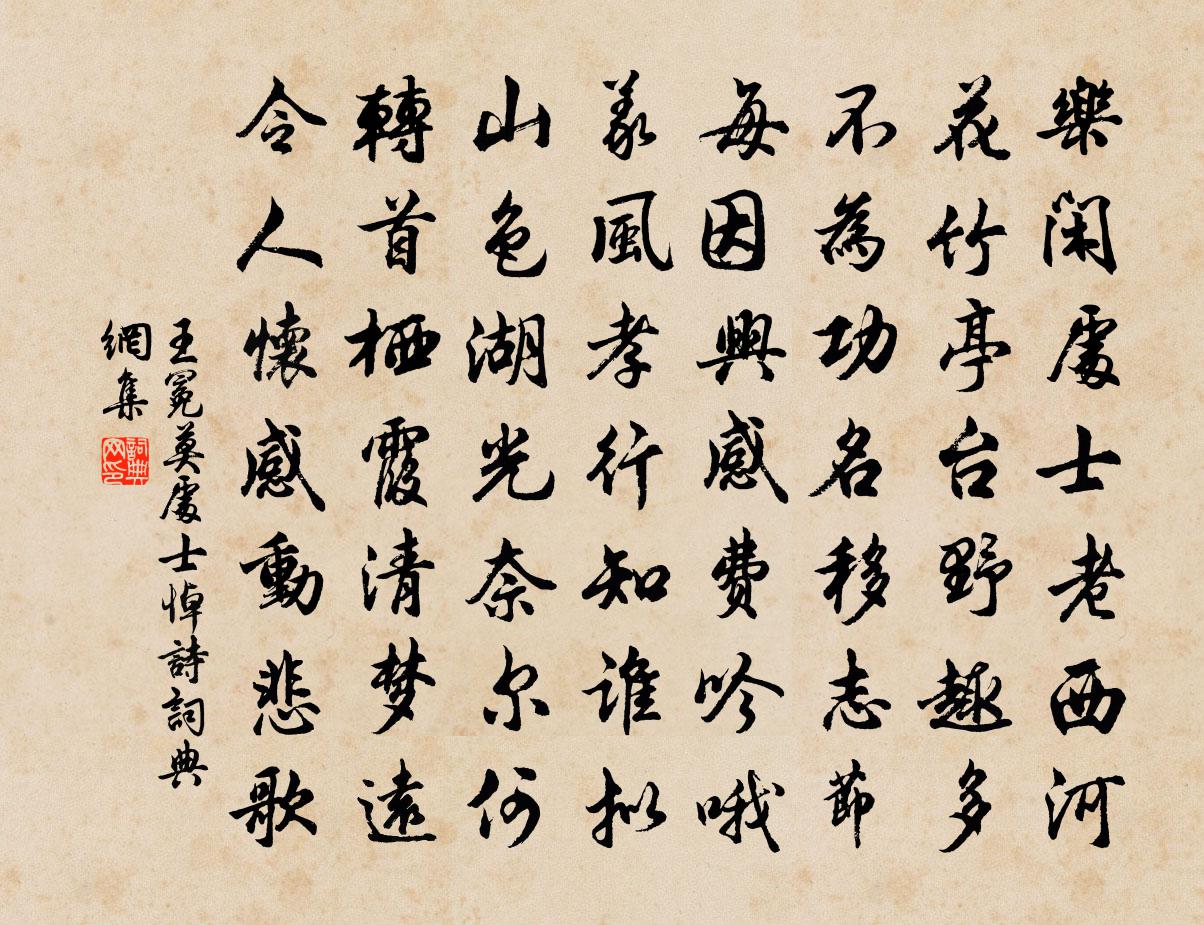 樂閑處士老西河
花竹亭台野趣多
不為功名移志節
每因興感費吟哦
義風孝行知誰拟
山色湖光奈尔何
轉首栖霞清梦遠
令人懷感動悲歌
王冕莫處士悼詩詞典
網集
詞典网印